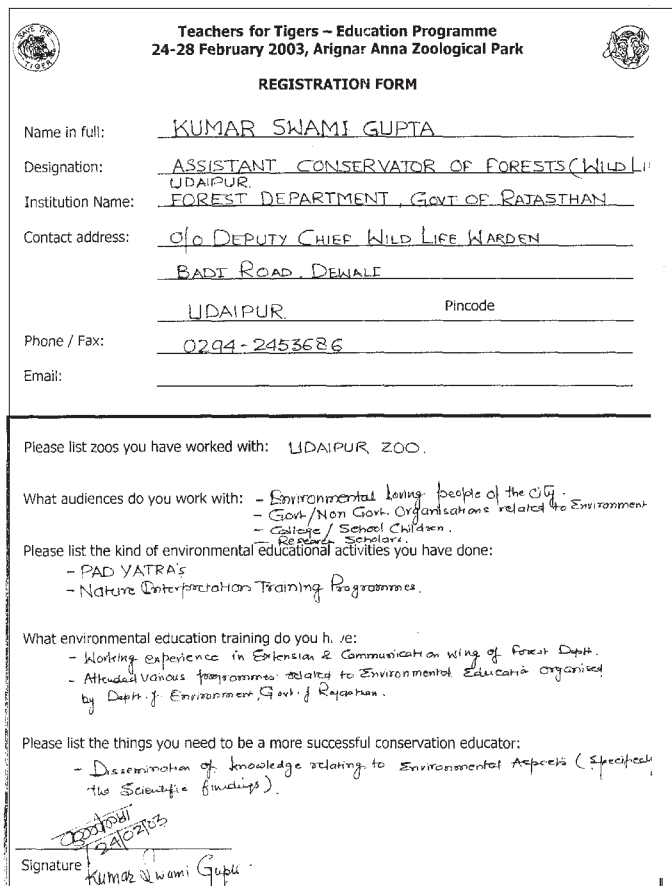 SAVE THE
TIGER
Teachers for Tigers – Education Programme
24-28 February 2003, Arignar Anna Zoological Park
REGISTRATION FORM
Name in full: KUMAR SWAMI GUPTA
Designation: ASSISTANT CONSERVATOR OF FORESTS (WILD LI
UDAIPUR.
Institution Name: FOREST DEPARTMENT, GOVT OF RAJASTHAN
Contact address: O/o DEPUTY CHIEF WILD LIFE WARDEN
BADI ROAD, DEWALI
UDAIPUR. Pincode
Phone / Fax: 0294-2453686
Email:
Please list zoos you have worked with: UDAIPUR ZOO.
What audiences do you work with: - Environmental loving people of the city.
- Govt/Non Govt. Organisations related to Environment
- College / School Children.
- Research Scholars.
Please list the kind of environmental educational activities you have done:
- PAD YATRA's
- Nature Interpretation Training Programmes.
What environmental education training do you h. ve:
- Working experience in Extension & Communication wing of Forest Deptt.
- Attended various programmes related to Environmental Educatio organised
by Deptt. of Environment, Govt. of Rajasthan.
Please list the things you need to be a more successful conservation educator:
- Dissemination of knowledge relating to Environmental Aspects (Specifical
the Scientific findings).
24/02/03
Signature Kumar Swami Gupta.